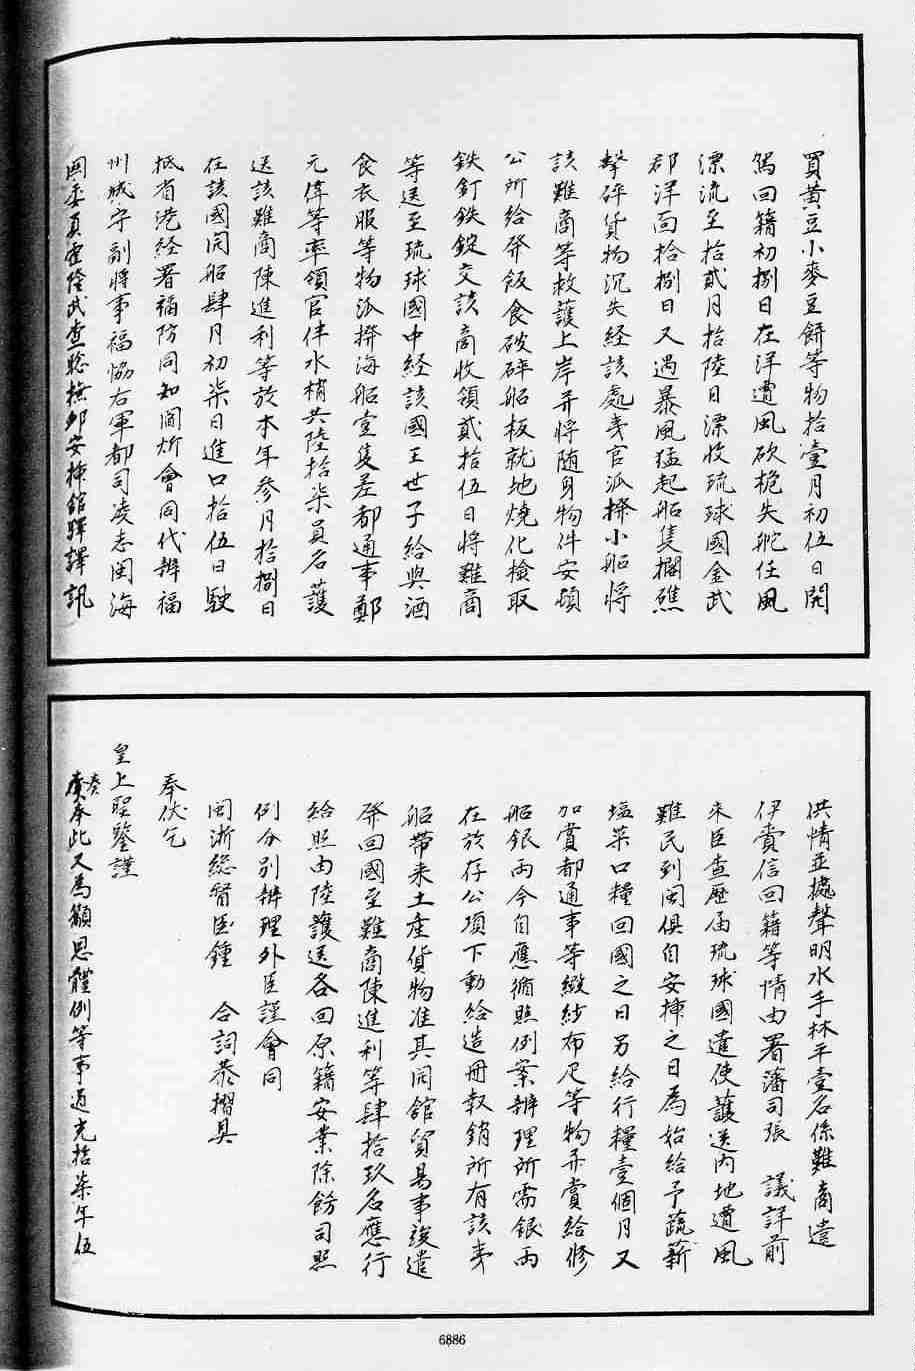 買黃豆小麥豆餅等物拾壹月初伍日開
駕回籍初捌日在洋遭風砍桅失舵任風
漂流至拾貳月拾陸日漂收琉球國金武
郡洋面拾捌日又遇暴風猛起船隻擱礁
擊碎貨物沉失經該處夷官派撥小船將
該難商等救護上岸并將随身物件安頓
公所給發飯食破碎船板就地燒化撿取
鉄釘鉄錠交該商收領貳拾伍日將難商
等送至琉球國中經該國王世子給與酒
食衣服等物派撥海船壹隻差都通事鄭
元偉等率領官伴水梢共陸拾柒員名護
送該難商陳進利等於本年參月拾捌日
在該國開船肆月初柒日進口拾伍日駛
抵省港經署福防同知閻炘會同代辦福
州城守副將事福協右軍都司凌志閩海
関委員霍隆武查驗撫卹安揷館驛譯訊
供情並據聲明水手林平壹名係難商遠
伊賚信回籍等情由署藩司張 議詳前
來臣查歷届琉球國遣使護送内地遭風
難民到閩俱自安揷之日為始給予蔬薪
塩菜口糧回國之日另給行糧壹個月又
加賞都通事等緞紗布疋等物并賞給修
船銀兩今自應循照例案辦理所需銀兩
在於存公項下動給造册報銷所有該夷
船帶来土產貨物准其開館貿易事竣遣
發回國至難商陳進利等肆拾玖名應行
給照由陸護送各回原籍安業除飭司照
例分别辦理外臣謹會同
閩浙總督臣鍾 合詞恭摺具
奏伏乞
皇上聖鑒謹
奏奉此又為籲恩體例等事道光拾柒年伍
6886